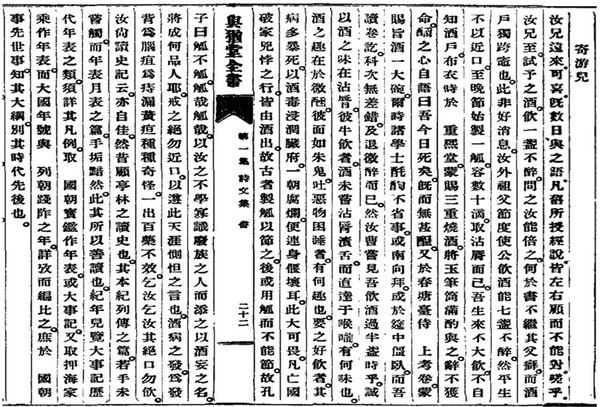 寄游兒
汝兄遠來可喜旣數日與之語凡舊所授經說皆左右顧而不能對嗟乎
汝兄至試予之酒飮一盞不醉問汝能倍之何於書不繼其父癖而酒
戶獨跨竈也此非好消息汝外祖父節度使公飮酒能七盞不醉然平生
不以近口至晩節始製一觚容數十滴取沾脣而已吾生來不大飮不自
知酒戶布衣時於　重熙堂蒙賜三重燒酒將玉筆筒滿酌與之辭不獲
命酬之心自語曰吾今日死矣旣而無甚醒又於春塘臺侍　上考卷蒙
賜旨酒一大碗爾時諸學士酕醄不省事或南向拜或於筵中僵臥而吾
讀卷訖科次無差錯及退微醉而已然汝曹嘗見吾飮酒過半盞時乎誠
以酒之味在沾脣彼牛飮者酒未嘗沾脣濱舌而直達于喉嚨有何味也
酒之趣在於微醺彼面如朱鬼吐惡物困睡者有何趣也要之好飮者其
病多暴死以酒毒浸潤臟府一朝腐爛便連身偃壞耳此大可畏凡亡國
破家兇悖之行皆由酒出故古者製觚以節之後或用觚而不能節故孔
與猶堂全書　第一集　詩文集　書　二十二
子曰觚不觚觚哉觚哉以汝之不學寡識廢族之人而添之以酒妄之名
將成何品人耶戒之絶勿近口以遵此天涯惻怛之言也酒病之發爲發
背爲腦疽爲痔漏黃疸種種奇怪一出百藥不效乞汝乞汝其絶口勿飮
汝尙讀史記云亦自佳然昔顧亭林之讀史也其本紀列傳之篇若手未
嘗觸而年表月表之篇手垢黯然此其所以善讀也紀年兒覽大事記歷
代年表之類須詳其凡例取　國朝寶鑑作年表或大事記又取押海家
乘作年表而大國年號與　列朝踐阼之年詳攷而編比之庶於　國朝
事先世事知其大綱別其時代先後也